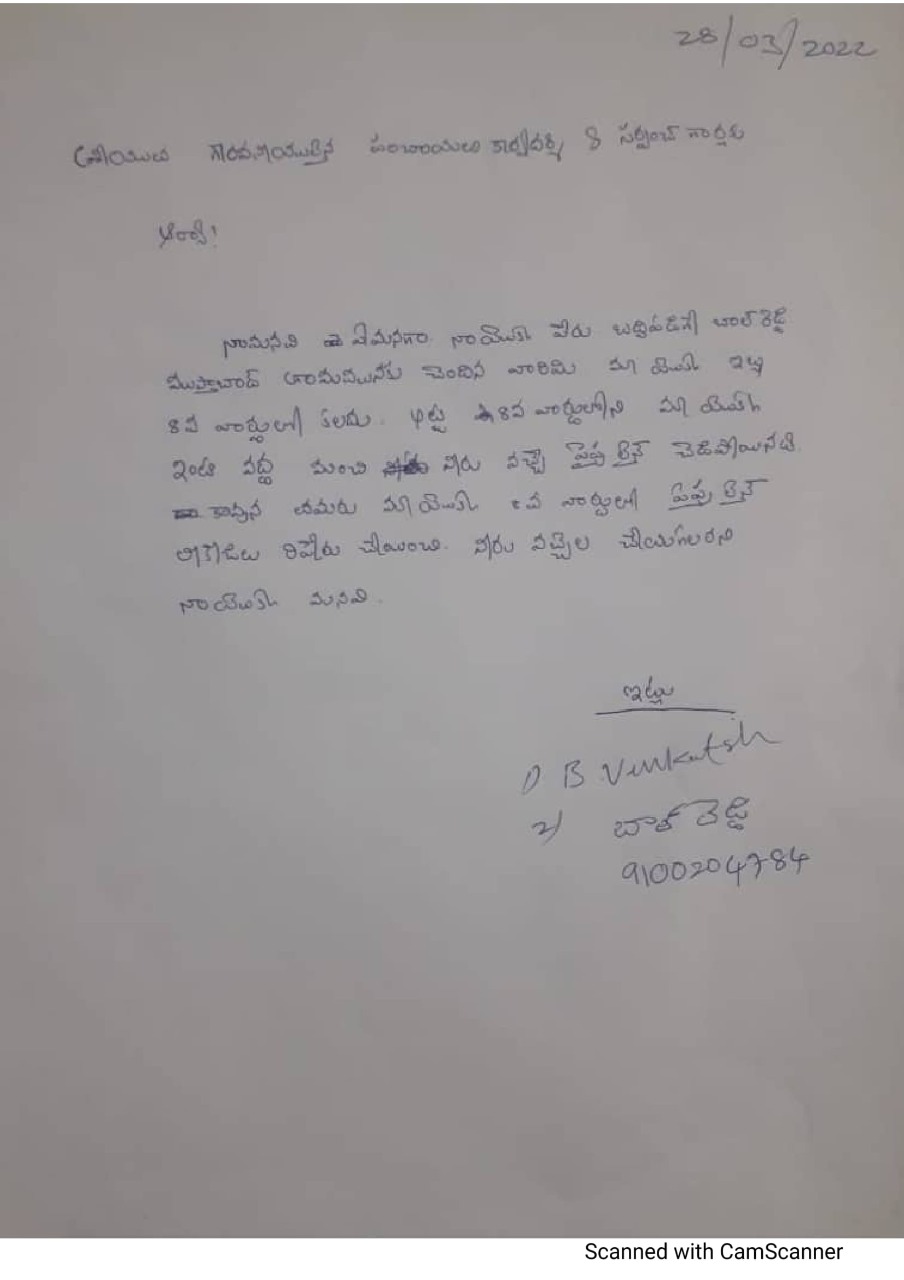 28/03/2022
గౌరవనీయులైన పంచాయతి కార్యదర్శి & సర్పంచ్ గార్లకు
ఆర్యా!
నామనవి ఏమనగా నాయొక్క పేరు బద్దిపడిగే బాల్ రెడ్డి
ముస్తాబాద్ గ్రామమునకు చెందిన వారిమి మా యొక్క ఇల్లు
8వ వార్డులో కలదు. 8వ వార్డులోని మా యొక్క
ఇంటి వద్ద మంచి నీరు వచ్చే పైపు లైన్ చెడిపోయినది.
కావున తమరు మా యొక్క 8వ వార్డులో పైపు లైన్
లీకేజిలు రిపేరు చేయించి. నీరు వచ్చేల చేయగలరని
నాయొక్క మనవి.
ఇట్లు
1) B Venkatsh
2) బాల్ రెడ్డి
9100204784
Scanned with CamScanner